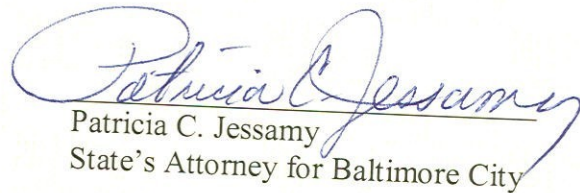 Patricia C. Jessamy
Patricia C. Jessamy
State's Attorney for Baltimore City